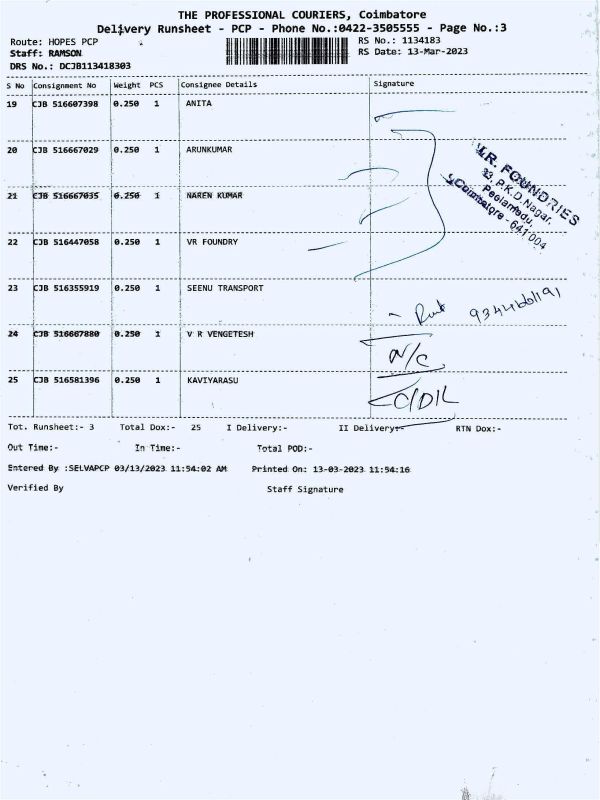 THE PROFESSIONAL COURIERS, Coimbatore
Delivery Runsheet - PCP - Phone No.:0422-3505555 - Page No.:3
Route: HOPES PCP
Staff: RAMSON
DRS No.: DCJB113418303
RS No.: 1134183
RS Date: 13-Mar-2023
S No Consignment No Weight PCS Consignee Details Signature
19 CJB 516607398 0.250 1 ANITA
20 CJB 516667029 0.250 1 ARUNKUMAR
21 CJB 516667035 0.250 1 NAREN KUMAR
22 CJB 516447058 0.250 1 VR FOUNDRY
V.R. FOUNDRIES
33, P.K.D. Nagar,
Peelamedu,
Coimbatore - 641 004
23 CJB 516355919 0.250 1 SEENU TRANSPORT
24 CJB 516667880 0.250 1 V R VENGETESH N/C
25 CJB 516581396 0.250 1 KAVIYARASU C/DIL
Tot. Runsheet:- 3 Total Dox:- 25 I Delivery:- II Delivery:- RTN Dox:-
Out Time:- In Time:- Total POD:-
Entered By :SELVAPCP 03/13/2023 11:54:02 AM Printed On: 13-03-2023 11:54:16
Verified By Staff Signature